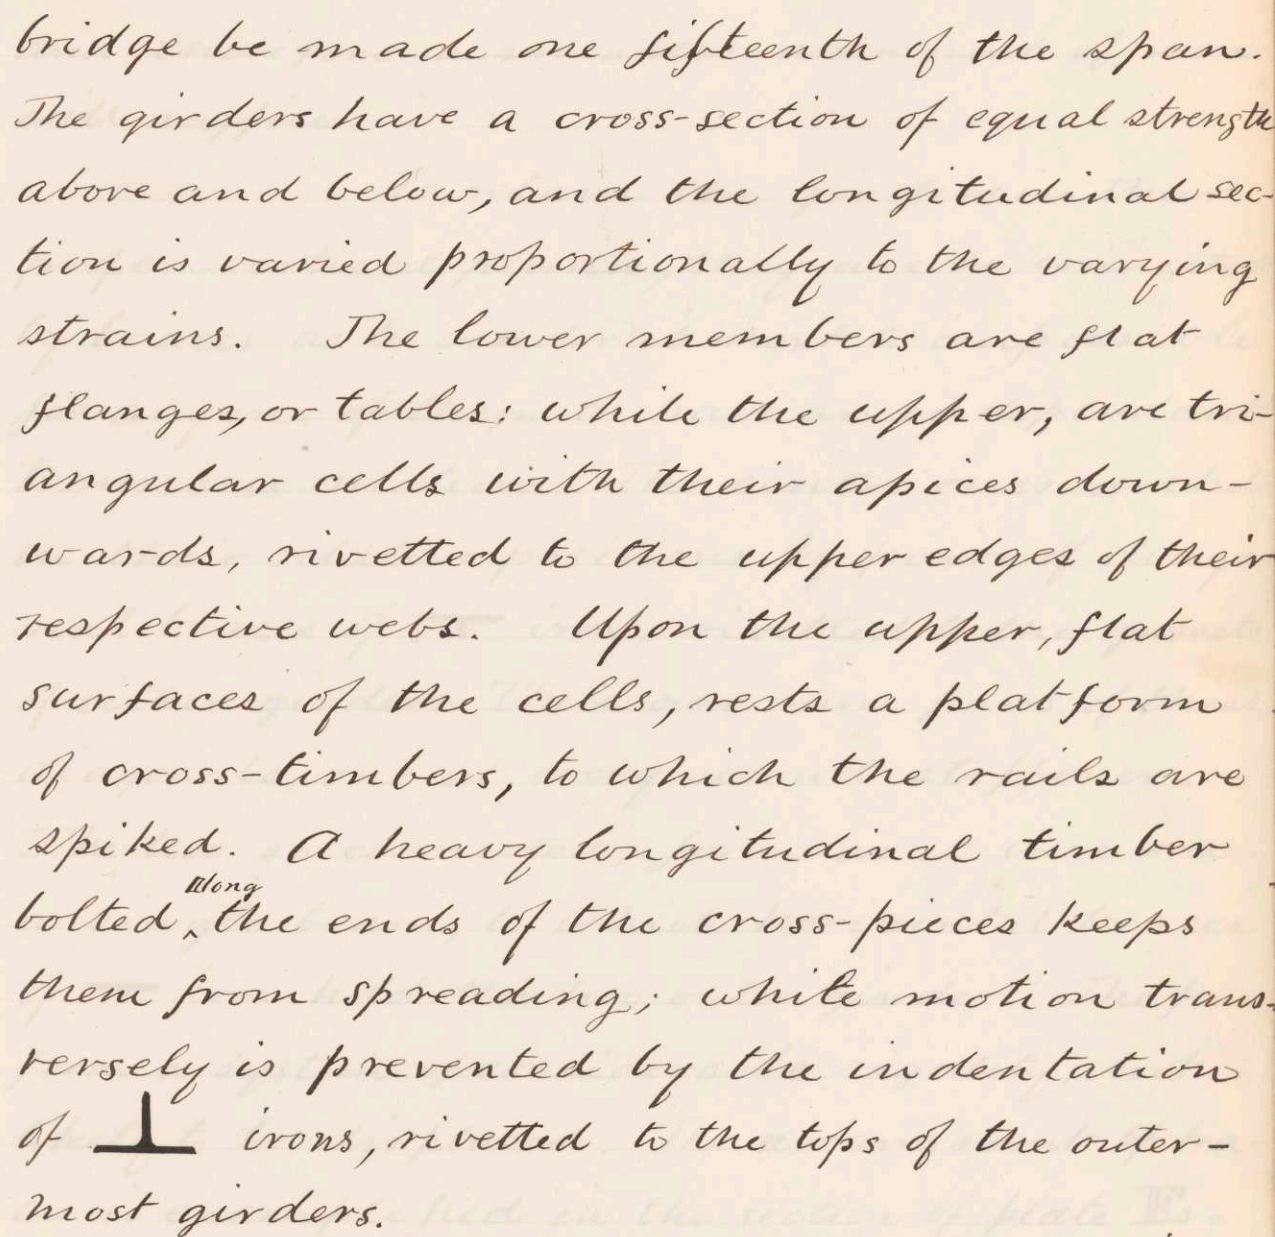 bridge be made one fifteenth of the span.
The girders have a cross-section of equal strength
above and below, and the longitudinal sec-
tion is varied proportionally to the varying
strains. The lower members are flat
flanges, or tables: while the upper, are tri-
angular cells with their apices down-
wards, rivetted to the upper edges of their
respective webs. Upon the upper, flat
surfaces of the cells, rests a platform
of cross-timbers, to which the rails are
spiked. A heavy longitudinal timber
along
bolted ‸ the ends of the cross-pieces keeps
them from spreading; while motion trans-
versely is prevented by the indentation
of ⊥ irons, rivetted to the tops of the outer-
most girders.